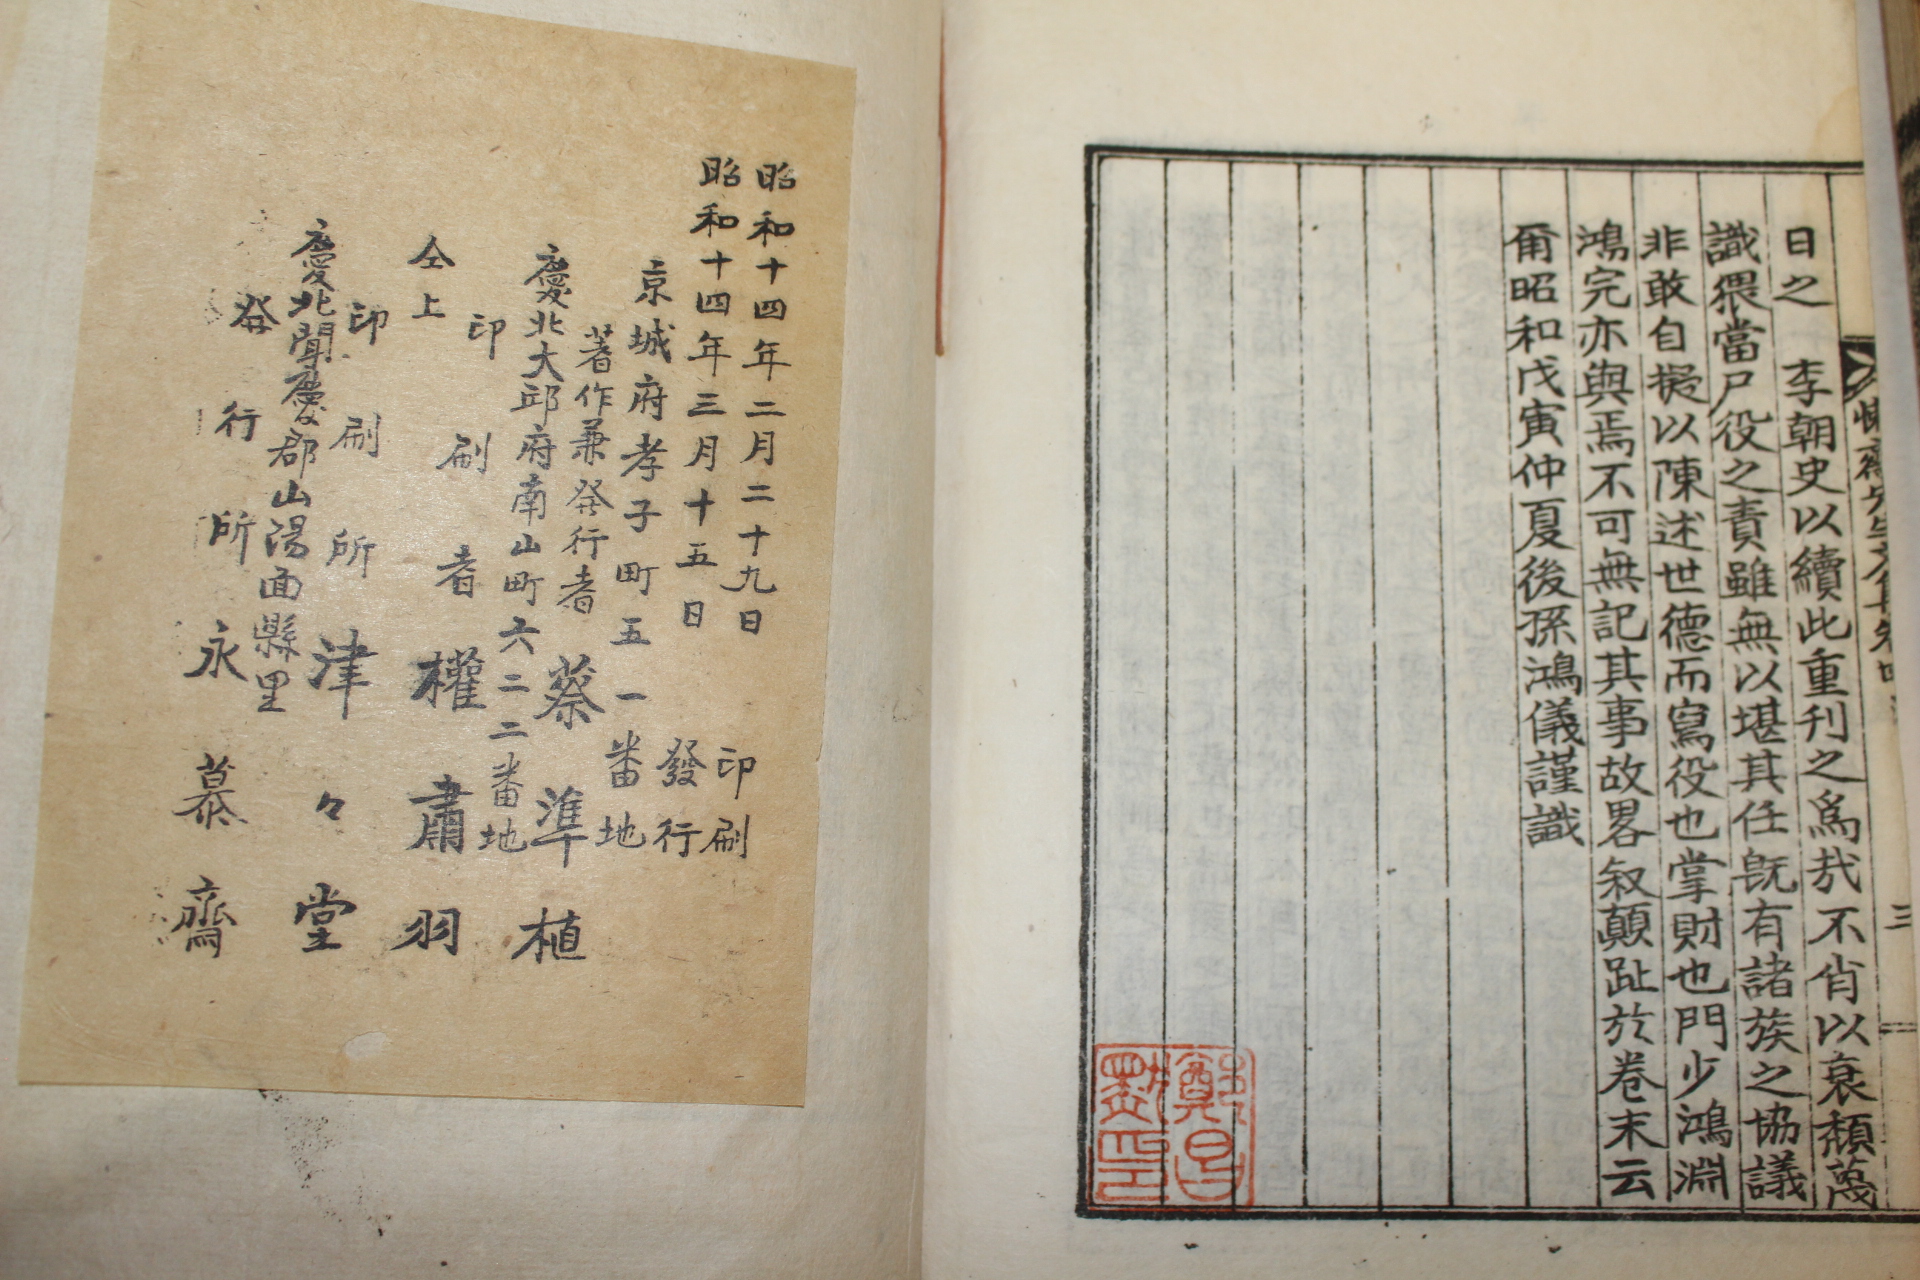 日之　李朝史以續此重刊之爲哉不肖以衰頹蔑
識猥當尸役之責雖無以堪其任旣有諸族之協議
非敢自擬以陳述世德而寫役也掌財也門少鴻淵
鴻完亦與焉不可無記其事故畧叙顛趾於卷末云
爾昭和戊寅仲夏後孫鴻儀謹識
三
昭和十四年二月二十九日　印刷
昭和十四年三月十五日　發行
京城府孝子町五一番地
著作兼発行者　蔡準植
慶北大邱府南山町六二二番地
印刷者　權肅羽
仝上
印刷所　津々堂
慶北聞慶郡山陽面縣里
発行所　永慕齋